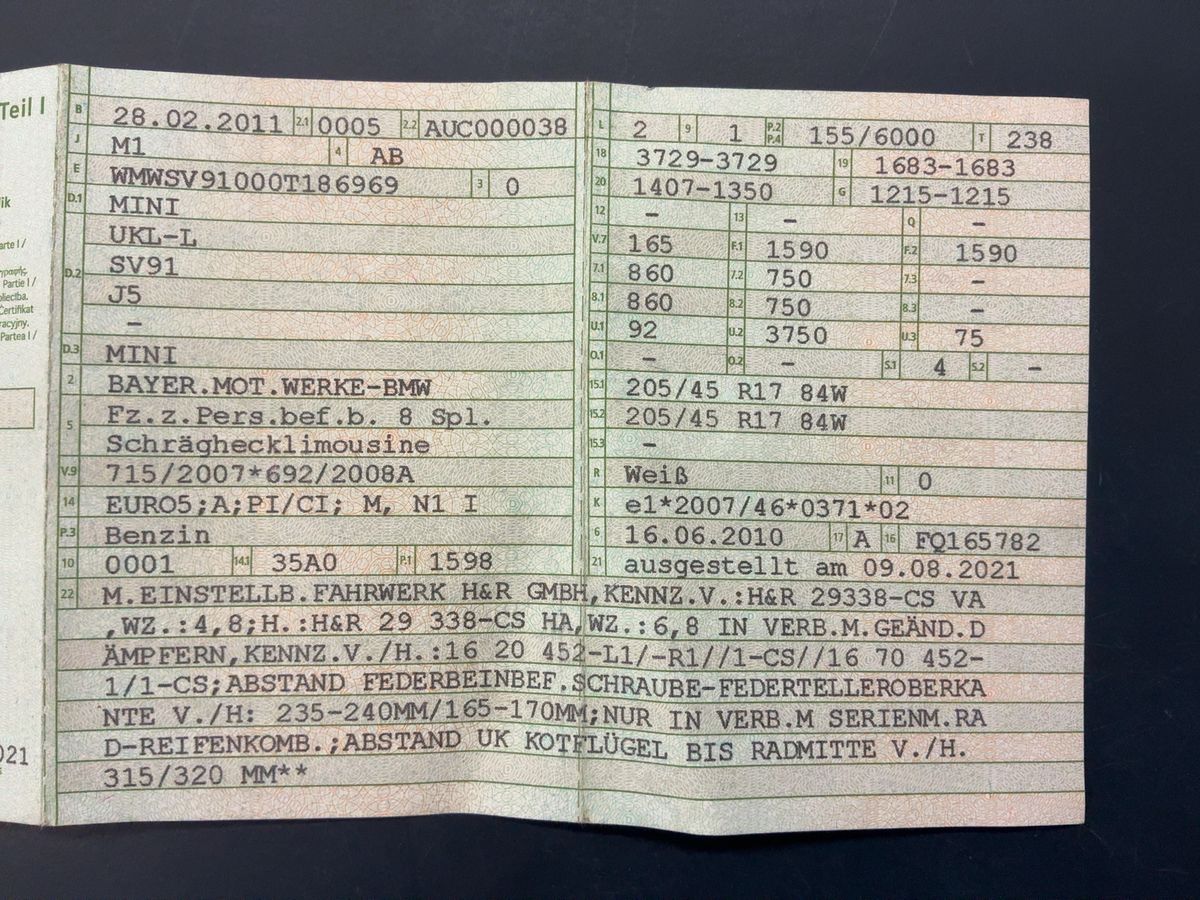 Teil I
ik
arte I /
γραφής,
Partie I /
Certifikat
racyjny.
Partea I /
021
B 28.02.2011 2.1 0005 2.2 AUC000038
J M1 4 AB
E WMWSV91000T186969 3 0
D.1 MINI
UKL-L
D.2 SV91
J5
-
D.3 MINI
2 BAYER.MOT.WERKE-BMW
5 Fz.z.Pers.bef.b. 8 Spl.
Schräghecklimousine
V.9 715/2007*692/2008A
14 EURO5;A;PI/CI; M, N1 I
P.3 Benzin
10 0001 14.1 35A0 P.1 1598
L 2 9 1 P.2 P.4 155/6000 T 238
18 3729-3729 19 1683-1683
20 1407-1350 G 1215-1215
12 - 13 - Q -
V.7 165 F.1 1590 F.2 1590
7.1 860 7.2 750 7.3 -
8.1 860 8.2 750 8.3 -
U.1 92 U.2 3750 U.3 75
O.1 - O.2 - S.1 4 S.2 -
15.1 205/45 R17 84W
15.2 205/45 R17 84W
15.3 -
R Weiß 11 0
K e1*2007/46*0371*02
6 16.06.2010 17 A 16 FQ165782
21 ausgestellt am 09.08.2021
22 M.EINSTELLB.FAHRWERK H&R GMBH,KENNZ.V.:H&R 29338-CS VA
,WZ.:4,8;H.:H&R 29 338-CS HA,WZ.:6,8 IN VERB.M.GEÄND.D
ÄMPFERN,KENNZ.V./H.:16 20 452-L1/-R1//1-CS//16 70 452-
1/1-CS;ABSTAND FEDERBEINBEF.SCHRAUBE-FEDERTELLEROBERKA
NTE V./H: 235-240MM/165-170MM;NUR IN VERB.M SERIENM.RA
D-REIFENKOMB.;ABSTAND UK KOTFLÜGEL BIS RADMITTE V./H.
315/320 MM**